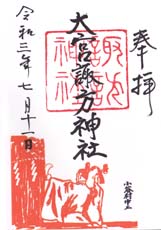 奉拝
大宮諏方神社
諏訪神社
令和三年七月十一日